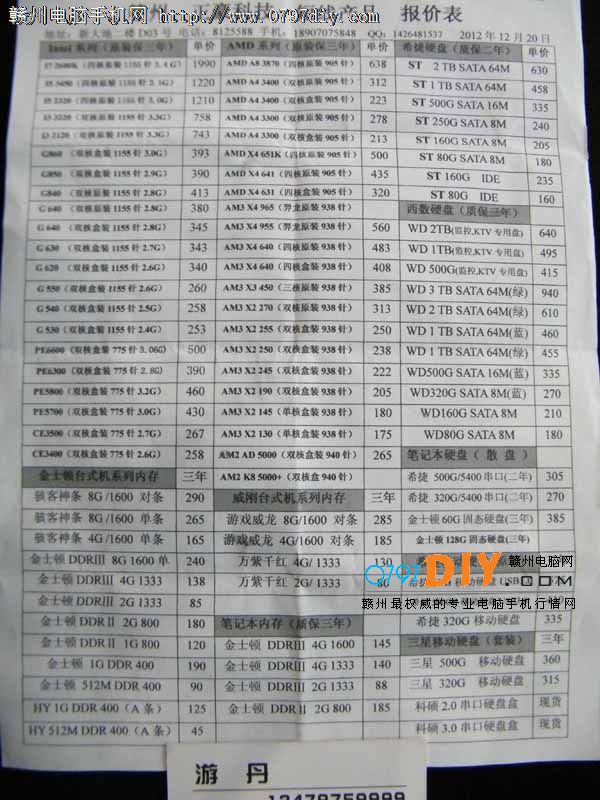 赣州电脑手机网 www.0797diy.com
报价表
地址：新大地二楼 D03 号 电话：8125588 手机：18907075848 QQ：1426481537 2012 年 12 月 20 日
Intel 系列（原装保三年） 单价
1990
1220
1210
758
743
G860 （双核盒装 1155 针 3.0G） 393
G850 （双核原装 1155 针 2.9G） 390
G840 （双核盒装 1155 针 2.8G） 413
G 640 （双核原装 1155 针 2.8G） 380
G 640 （双核盒装 1155 针 2.8G） 345
G 630 （双核盒装 1155 针 2.7G） 343
G 620 （双核盒装 1155 针 2.6G） 340
G 550 （双核盒装 1155 针 2.6G） 260
G 540 （双核原装 1155 针 2.5G） 258
G 530 （双核盒装 1155 针 2.4G） 253
PE6600 （双核盒装 775 针 3.06G） 500
PE6300 （双核盒装 775 针 2.8G） 390
PE5800（双核盒装 775 针 3.2G） 460
PE5700（双核盒装 775 针 3.0G） 430
CE3500（双核盒装 775 针 2.7G） 267
CE3400（双核盒装 775 针 2.6G） 258
金士顿台式机系列内存 三年
骇客神条 8G /1600 对条 290
骇客神条 8G /1600 单条 265
骇客神条 4G /1600 单条 165
金士顿 DDRⅢ 8G 1600 单 240
金士顿 DDRⅢ 4G 1333 138
金士顿 DDRⅢ 2G 1333 85
金士顿 DDRⅡ 2G 800 180
金士顿 DDRⅡ 1G 800 120
金士顿 1G DDR 400 190
金士顿 512M DDR 400 90
HY 1G DDR 400（A 条） 125
HY 512M DDR 400（A 条） 45
AMD 系列（原装保三年） 单价
AMD A8 3870（四核原装 905 针） 638
AMD A4 3400（双核盒装 905 针） 312
AMD A4 3400（双核原装 905 针） 223
AMD A4 3300（双核盒装 905 针） 278
AMD A4 3300（双核原装 905 针） 213
AMD X4 651K（四核盒装 905 针） 500
AMD X4 641（四核原装 905 针） 435
AMD X4 631（四核盒装 905 针） 320
AM3 X4 965（羿龙原装 938 针）
AM3 X4 955（羿龙盒装 938 针） 560
AM3 X4 640（四核盒装 938 针） 483
AM3 X4 640（四核原装 938 针） 408
AM3 X3 450（三核原装 938 针） 385
AM3 X2 270（双核原装 938 针） 313
AM3 X2 255（双核盒装 938 针） 250
AM3 X2 250（双核盒装 938 针） 238
AM3 X2 245（双核盒装 938 针） 222
AM3 X2 190（双核盒装 938 针） 205
AM3 X2 145（单核盒装 938 针） 180
AM3 X2 130（单核盒装 938 针） 175
AM2 AD 5000（双核盒装 940 针） 265
AM2 K8 5000+（双核盒 940 针）
威刚台式机系列内存 三年
游戏威龙 8G/1600 对条 285
游戏威龙 4G/1600 对条 185
万紫千红 4G/ 1333 130
万紫千红 2G/ 1333 80
笔记本内存（质保三年）
金士顿 DDRⅢ 4G 1600 145
金士顿 DDRⅢ 4G 1333 140
金士顿 DDRⅢ 2G 1333 88
金士顿 DDRⅡ 2G 800 185
希捷硬盘（质保二年） 单价
ST 2 TB SATA 64M 630
ST 1 TB SATA 64M 458
ST 500G SATA 16M 335
ST 250G SATA 8M 240
ST 160G SATA 8M 205
ST 80G SATA 8M 180
ST 160G IDE 235
ST 80G IDE 160
西数硬盘（质保三年）
WD 2TB(监控,KTV 专用盘) 640
WD 1TB(监控,KTV 专用盘) 495
WD 500G(监控,KTV 专用盘) 415
WD 3 TB SATA 64M(绿) 940
WD 2 TB SATA 64M(绿) 610
WD 1 TB SATA 64M(蓝) 460
WD 1 TB SATA 64M(绿) 455
WD500G SATA 16M(蓝) 335
WD320G SATA 8M(蓝) 270
WD160G SATA 8M 210
WD80G SATA 8M 180
笔记本硬盘（散 盘）
希捷 500G/5400 串口(二年) 305
希捷 320G/5400 串口(二年) 270
金士顿 60G 固态硬盘(三年) 385
金士顿 128G 固态硬盘(三年)
希捷 320G 移动硬盘 335
三星移动硬盘（套装） 三年
三星 500G 移动硬盘 360
三星 320G 移动硬盘 315
科硕 2.0 串口硬盘盒 现货
科硕 3.0 串口硬盘盒 现货
0797DIY.COM 赣州电脑网
赣州最权威的专业电脑手机行情网
游 丹